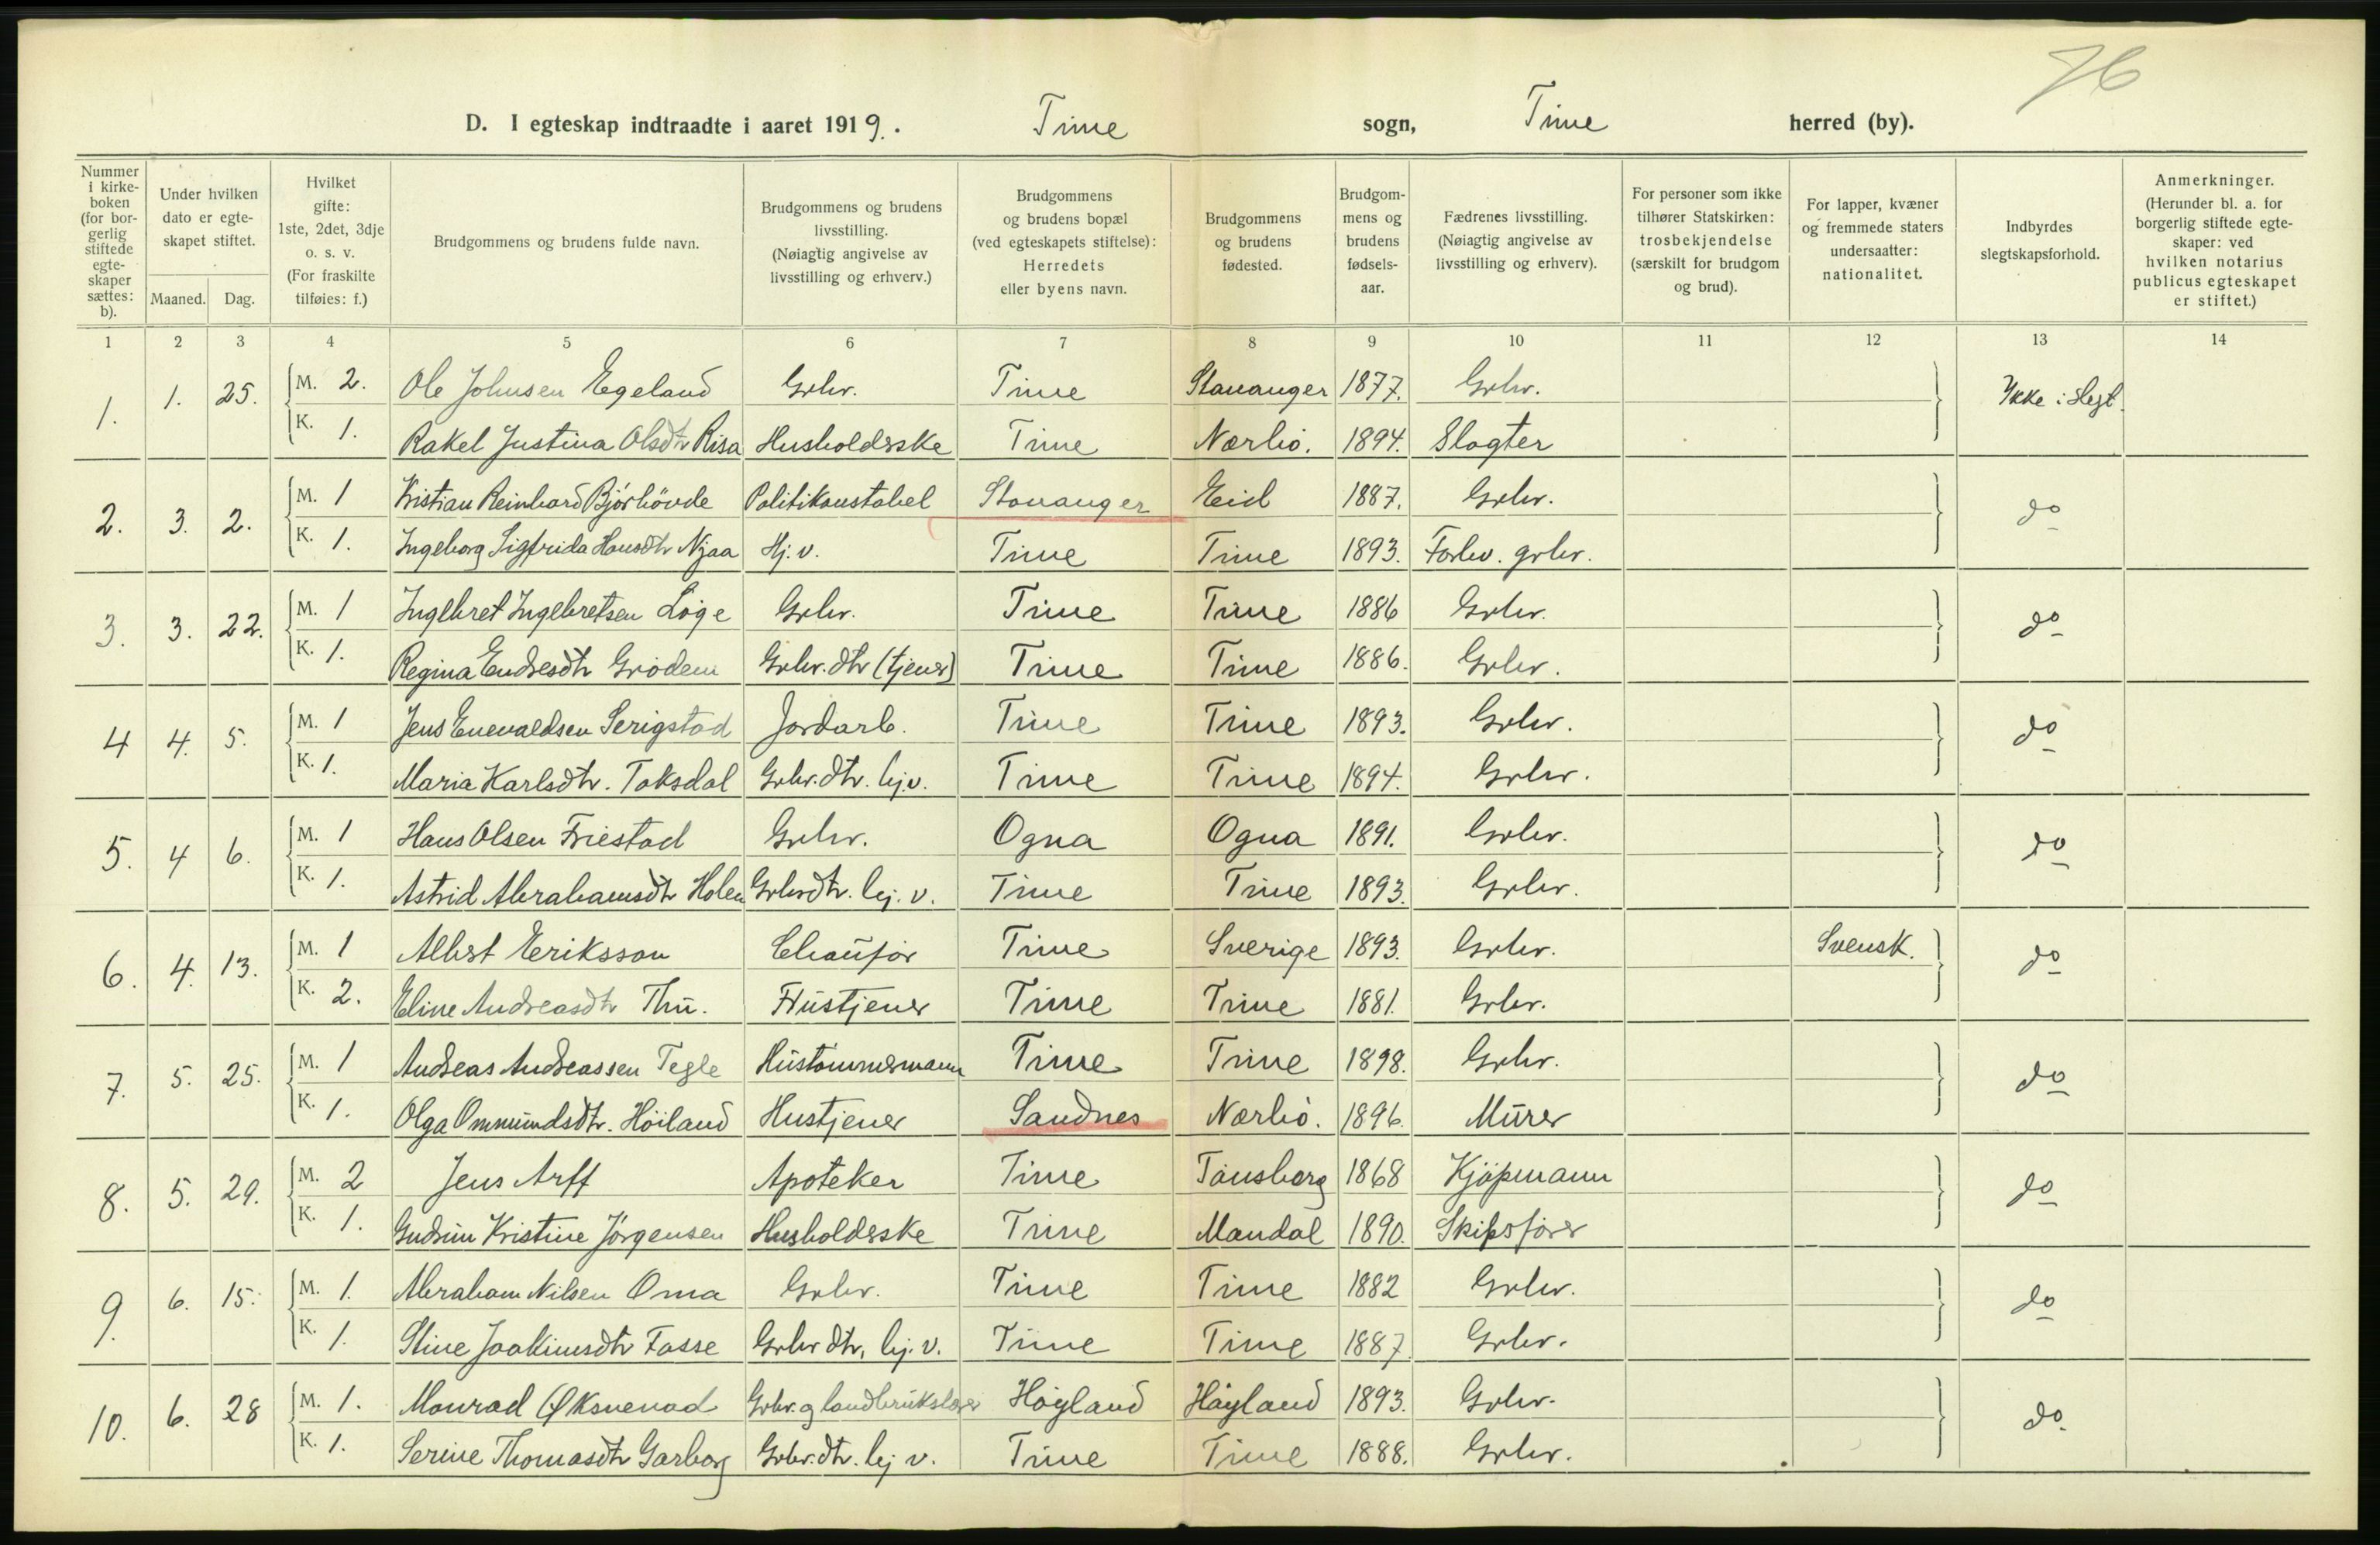 76
D. I egteskap indtraadte i aaret 1919. Time sogn, Time herred (by).
Nummer i kirke-boken (for bor-gerlig stiftede egte-skaper sættes: b).
Under hvilken dato er egte-skapet stiftet.
Maaned. Dag.
Hvilket gifte: 1ste, 2det, 3dje o. s. v. (For fraskilte tilføies: f.)
Brudgommens og brudens fulde navn.
Brudgommens og brudens livsstilling. (Nøiagtig angivelse av livsstilling og erhverv.)
Brudgommens og brudens bopæl (ved egteskapets stiftelse): Herredets eller byens navn.
Brudgommens og brudens fødested.
Brudgom-mens og brudens fødsels-aar.
Fædrenes livsstilling. (Nøiagtig angivelse av livsstilling og erhverv).
For personer som ikke tilhører Statskirken: trosbekjendelse (særskilt for brudgom og brud).
For lapper, kvæner og fremmede staters undersaatter: nationalitet.
Indbyrdes slegtskapsforhold.
Anmerkninger. (Herunder bl. a. for borgerlig stiftede egte-skaper: ved hvilken notarius publicus egteskapet er stiftet.)
1 2 3 4 5 6 7 8 9 10 11 12 13 14
1. 1. 25. M. 2. Ole Johnsen Egeland Grbr. Time Stavanger 1877. Grbr. Ikke i slegt.
K. 1. Rakel Justina Olsdtr Risa Husholderske Time Nærbö. 1894. Slagter
2. 3. 2. M. 1 Kristian Reinhard Bjórhövde Politikonstabel Stavanger Eid 1887. Grbr. do
K. 1. Ingeborg Sigfrida Hansdtr Njaa Hj. v. Time Time 1893. Forhv. grbr.
3. 3. 22. M. 1 Ingebret Ingebretsen Löge Grbr. Time Time 1886 Grbr. do
K. 1. Regina Endresdtr Grödem Grbr. dtr (tjener) Time Time 1886. Grbr.
4 4. 5. M. 1 Jens Enevaldsen Serigstad Jordarb. Time Time 1893. Grbr. do
K. 1. Maria Karlsdtr. Taksdal Grbr. dtr. hj. v. Time Time 1894. Grbr.
5. 4 6. M. 1 Hans Olsen Friestad Grbr. Ogna Ogna 1891. Grbr. do
K. 1. Astrid Abrahamsdtr Holen Grbrdtr. hj. v. Time Time 1893. Grbr.
6. 4. 13. M. 1 Albert Eriksson Chaufför Time Sverige 1893. Grbr. Svensk. do
K. 2. Eline Andreasdtr Thu. Hustjener Time Time 1881. Grbr.
7. 5. 25. M. 1 Andreas Andreassen Tegle Hustömmermann Time Time 1898. Grbr. do
K. 1. Olga Ommundsdtr. Höiland Hustjener Sandnes Nærbö. 1896. Murer
8. 5. 29. M. 2 Jens Arff Apoteker Time Tönsberg 1868 Kjöpmann do
K. 1. Gudrun Kristine Jörgensen Husholderske Time Mandal 1890. Skipsförer
9. 6. 15. M. 1. Abraham Nilsen Oma Grbr. Time Time 1882 Grbr. do
K. 1. Stine Joakimsdtr Fosse Grbr dtr, hj. v. Time Time 1887. Grbr.
10. 6. 28 M. 1. Monrad Øksnevad Grbr. og landbrukslærer Höyland Höyland 1893. Grbr. do
K. 1. Serine Thomasdtr Garborg Grbr. dtr. hj v. Time Time 1888. Grbr.